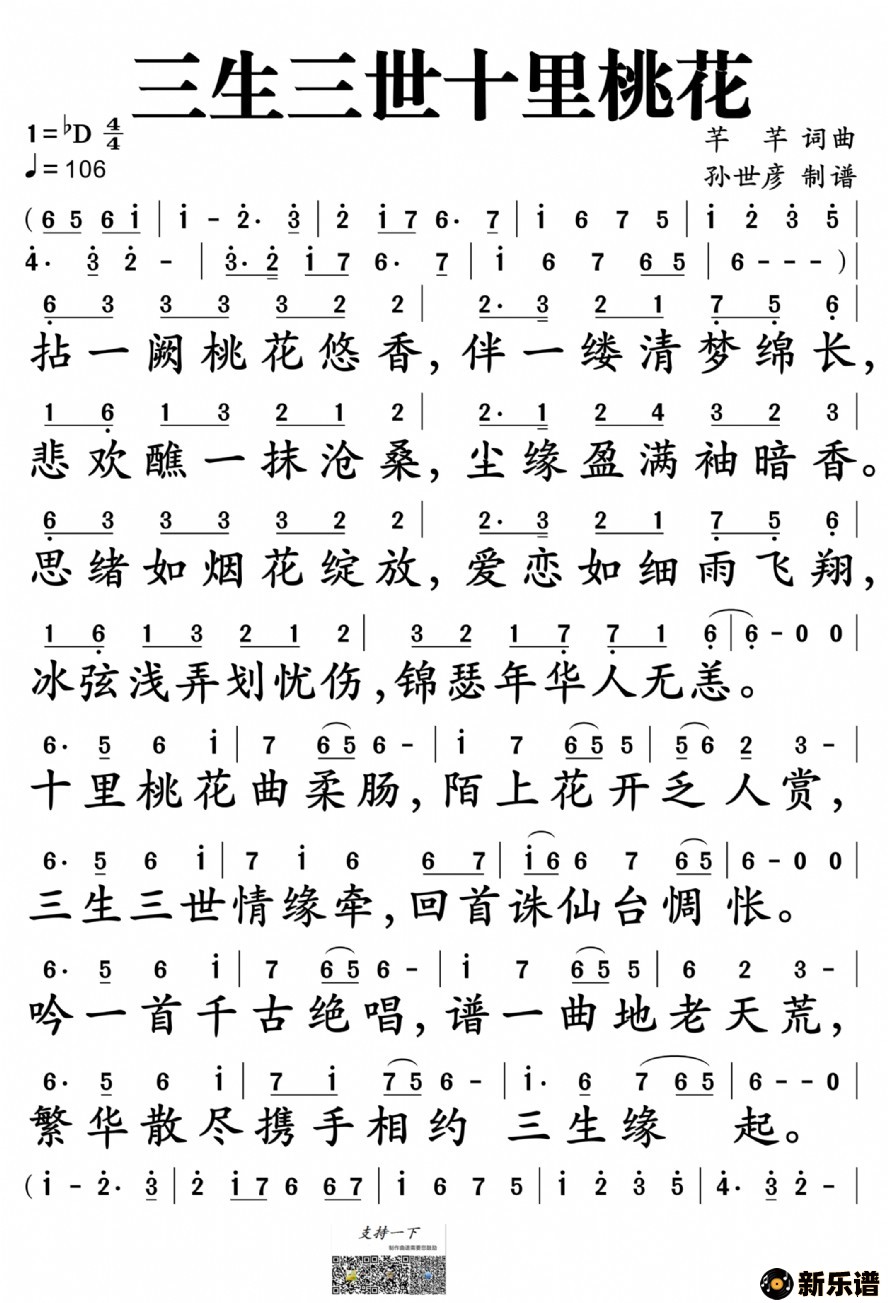 三生三世十里桃花
1=♭D 4/4
芊 芊 词曲
♩=106
孙世彦 制谱
(6 5 6 i | i - 2· 3 | 2 i 7 6· 7 | i 6 7 5 | i 2 3 5 |
4· 3 2 - | 3· 2 i 7 6· 7 | i 6 7 6 5 | 6 - - - ) |
6 3 3 3 3 2 2 | 2· 3 2 1 7 5 6 |
拈一阙桃花悠香,伴一缕清梦绵长,
1 6 1 3 2 1 2 | 2· 1 2 4 3 2 3
悲欢醮一抹沧桑,尘缘盈满袖暗香。
6 3 3 3 3 2 2 | 2· 3 2 1 7 5 6 |
思绪如烟花绽放,爱恋如细雨飞翔,
1 6 1 3 2 1 2 | 3 2 1 7 7 1 6 | 6 - 0 0 |
冰弦浅弄划忧伤,锦瑟年华人无恙。
6· 5 6 i | 7 6 5 6 - | i 7 6 5 5 | 5 6 2 3 - |
十里桃花曲柔肠,陌上花开乏人赏,
6· 5 6 i | 7 i 6 6 7 | i 6 6 7 6 5 | 6 - 0 0 |
三生三世情缘牵,回首诛仙台惆怅。
6· 5 6 i | 7 6 5 6 - | i 7 6 5 5 | 6 2 3 - |
吟一首千古绝唱,谱一曲地老天荒,
6· 5 6 i | 7 i 7 5 6 - | i· 6 7 6 5 | 6 - - 0 |
繁华散尽携手相约 三生缘 起。
(i - 2· 3 | 2 i 7 6 6 7 | i 6 7 5 | i 2 3 5 | 4· 3 2 - |
支持一下
新乐谱